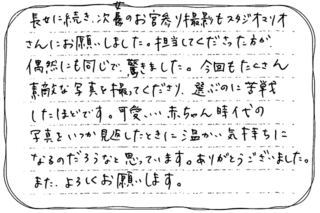 長女に続き、次女のお宮参り撮影もスタジオマリオ
さんにお願いしました。担当してくださった方が
偶然にも同じで、驚きました。今回もたくさん
素敵な写真を撮ってくださり、選ぶのに苦戦
したほどです。可愛いい赤ちゃん時代の
写真をいつか見返したときに温かい気持ちに
なるのだろうなと思っています。ありがとうございました。
また、よろしくお願いします。